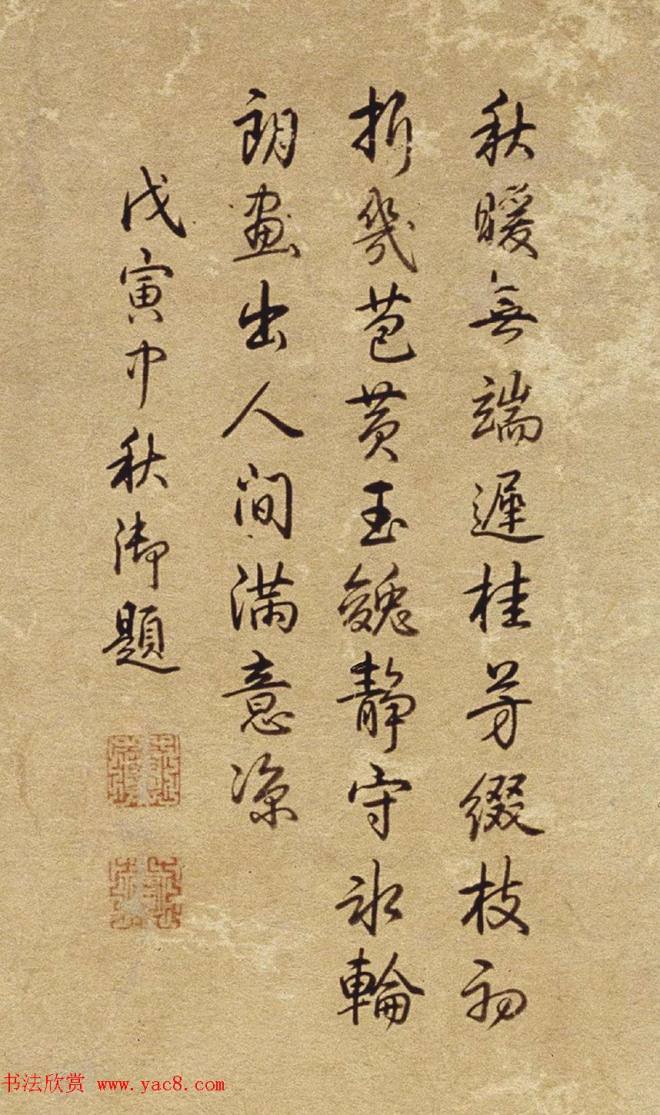 秋暖無端遲桂芳綴枝初
折幾苞黃玉㕙靜守冰輪
朗畫出人間滿意涼
戊寅中秋御題
书法欣赏 www.yac8.com